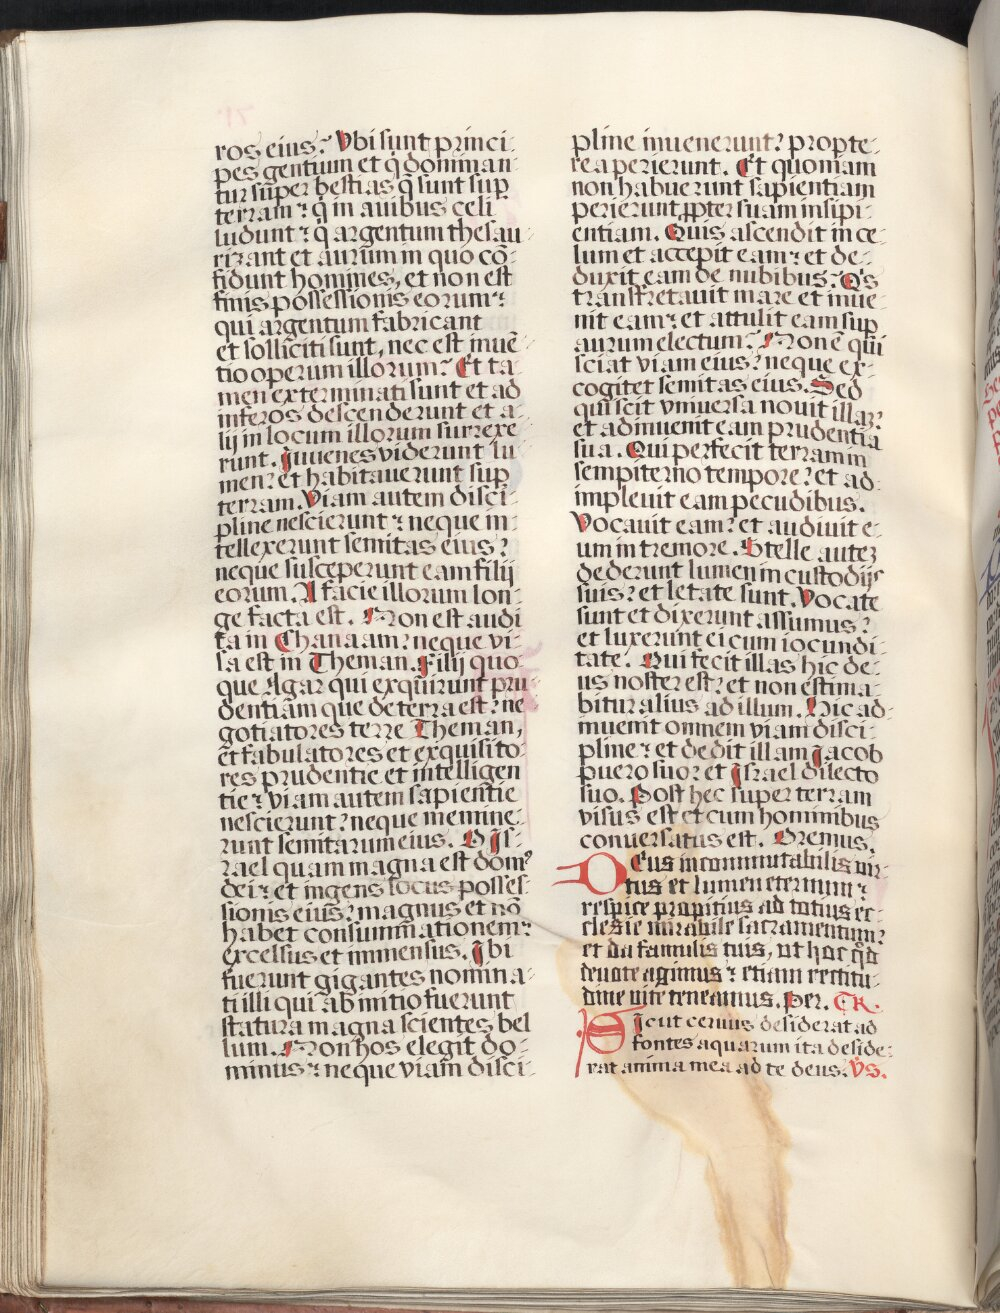 ros eius? Vbi sunt princi-
pes gentium et q̇ dominan-
tur sup̄er bestias q̄ sunt sup̱
terram? q̇ in auibus celi
ludunt? q̇ argentum thesau-
rizant et aurum in quo cō-
fidunt homines, et non est
finis possessionis eorum?
qui argentum fabricant
et solliciti sunt, nec est inuē-
tio operum illorum? Et ta-
men exterminati sunt et ad
inferos descenderunt et a-
lij in locum illorum surrexe-
runt. Iuuenes viderunt lu-
men? et habitauerunt sup̱
terram. Viam autem disci-
pline nescierunt? neque in-
tellexerunt semitas eius?
neque susceperunt eam filij
eorum. A facie illorum lon-
ge facta est. Non est audi-
ta in Chanaam? neque vi-
sa est in Theman. Filij quo-
que Agar qui exquirunt pru-
dentiam que de terra est? ne-
gotiatores terre Theman,
et fabulatores et exquisito-
res prudentie et intelligen-
tie? viam autem sapientie
nescierunt? neque memine-
runt semitarum eius. O Is-
rael quam magna est domꝰ
dei? et ingens locus posses-
sionis eius? magnus et nō
habet consummationem?
excelsus et immensus. Ibi
fuerunt gigantes nomina-
ti illi qui ab initio fuerunt
statura magna scientes bel-
lum. Non hos elegit do-
minus? neque viam disci-
pline inuenerunt? propte-
rea perierunt. Et quoniam
non habuerunt sapientiam
perierunt ꝓpter suam insipi-
entiam. Quis ascendit in ce-
lum et accepit eam? et de-
duxit eam de nubibus? Q's
transfretauit mare et inue-
nit eam? et attulit eam sup̱
aurum electum? Non ē qui
sciat viam eius? neque ex-
cogitet semitas eius. Sed
qui scit vniuersa nouit illaꝫ?
et adinuenit eam prudentia
sua. Qui perfecit terram in
sempiterno tempore? et ad-
impleuit eam pecudibus.
Vocauit eam? et audiuit e-
um in tremore. Stelle auteꝫ
dederunt lumen in custodijs
suis? et letate sunt. Vocate
sunt et dixerunt assumus?
et luxerunt ei cum iocundi-
tate. Qui fecit illas hic de-
us noster est? et non estima-
bitur alius ad illum. Hic ad-
inuenit omnem viam disci-
pline? et dedit illam Jacob
puero suo? et Israel dilecto
suo. Post hec super terram
visus est et cum hominibus
conuersatus est. Oremus.
Deus incommutabilis vir-
tus et lumen eternum?
respice propitius ad totius ec-
clesie mirabile sacramentum?
et da famulis tuis, vt hoc q̇d
deuote agimus? etiam rectitu-
dine uite teneamus. Per. TR.
Sicut ceruus desiderat ad
fontes aquarum ita deside-
rat anima mea ad te deus. VS.